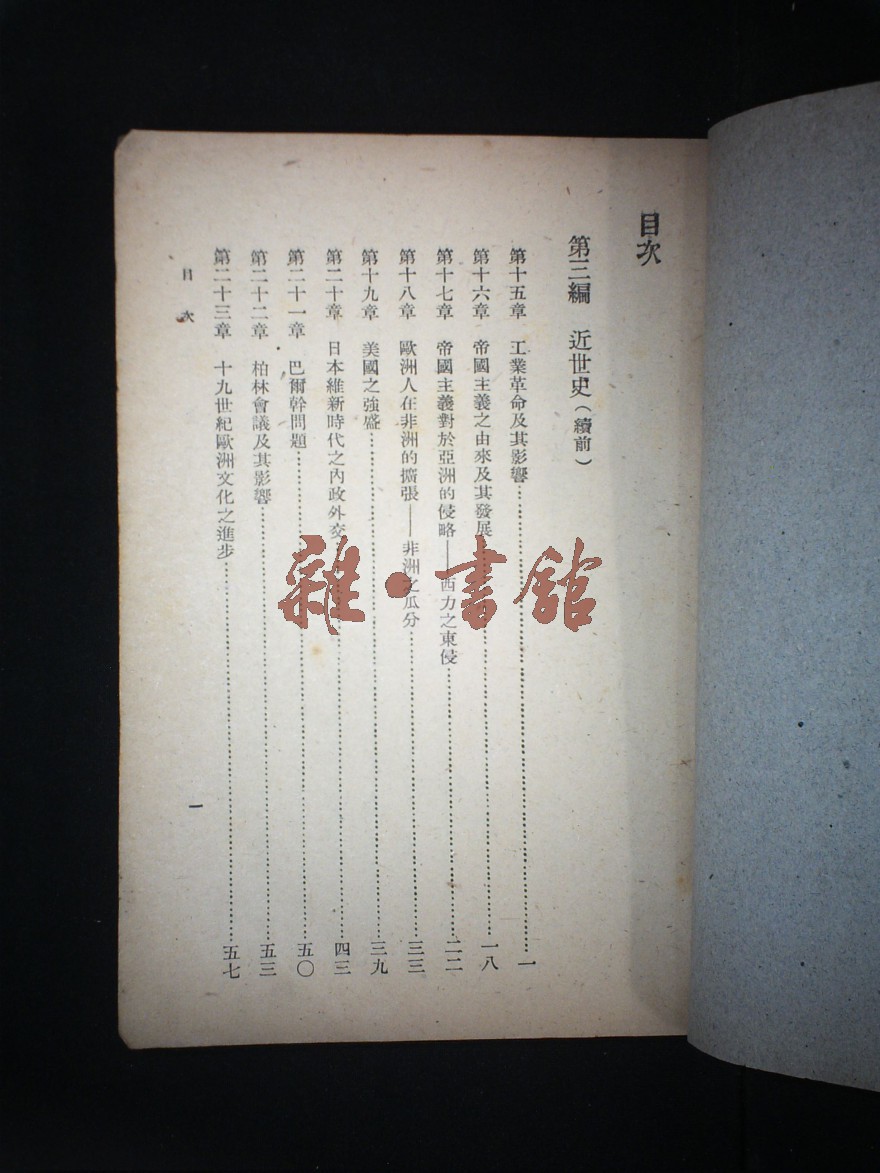 目次
第三編　近世史（續前）
第十五章　工業革命及其影響……一
第十六章　帝國主義之由來及其發展……一八
第十七章　帝國主義對於亞洲的侵略——西力之東侵……二二
第十八章　歐洲人在非洲的擴張——非洲之瓜分……三三
第十九章　美國之強盛……三九
第二十章　日本維新時代之內政外交……四三
第二十一章　巴爾幹問題……五〇
第二十二章　柏林會議及其影響……五三
第二十三章　十九世紀歐洲文化之進步……五七
目次
一
雜·書館